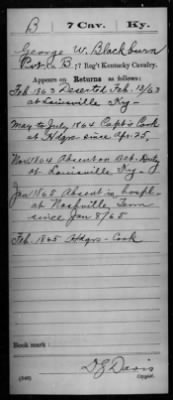 B | 7 Cav. | Ky.
George W. Blackburn
Pvt., Co. B, 7 Reg't Kentucky Cavalry.
Appears on Returns as follows:
Feb. 1863 Deserted Feb. 13/63
at Louisville Ky-
May to July, 1864 Capt's Cook
at Hdqrs since Apr. 25,
Nov. 1864 Absent on Det. Duty
at Louisville Ky-
Jan 1865 Absent in hospl-
at Nashville, Tenn
since Jan 8/65
Feb. 1865 Hdqrs- Cook
Book mark:
(546)
D. J. Davis
Copyist.